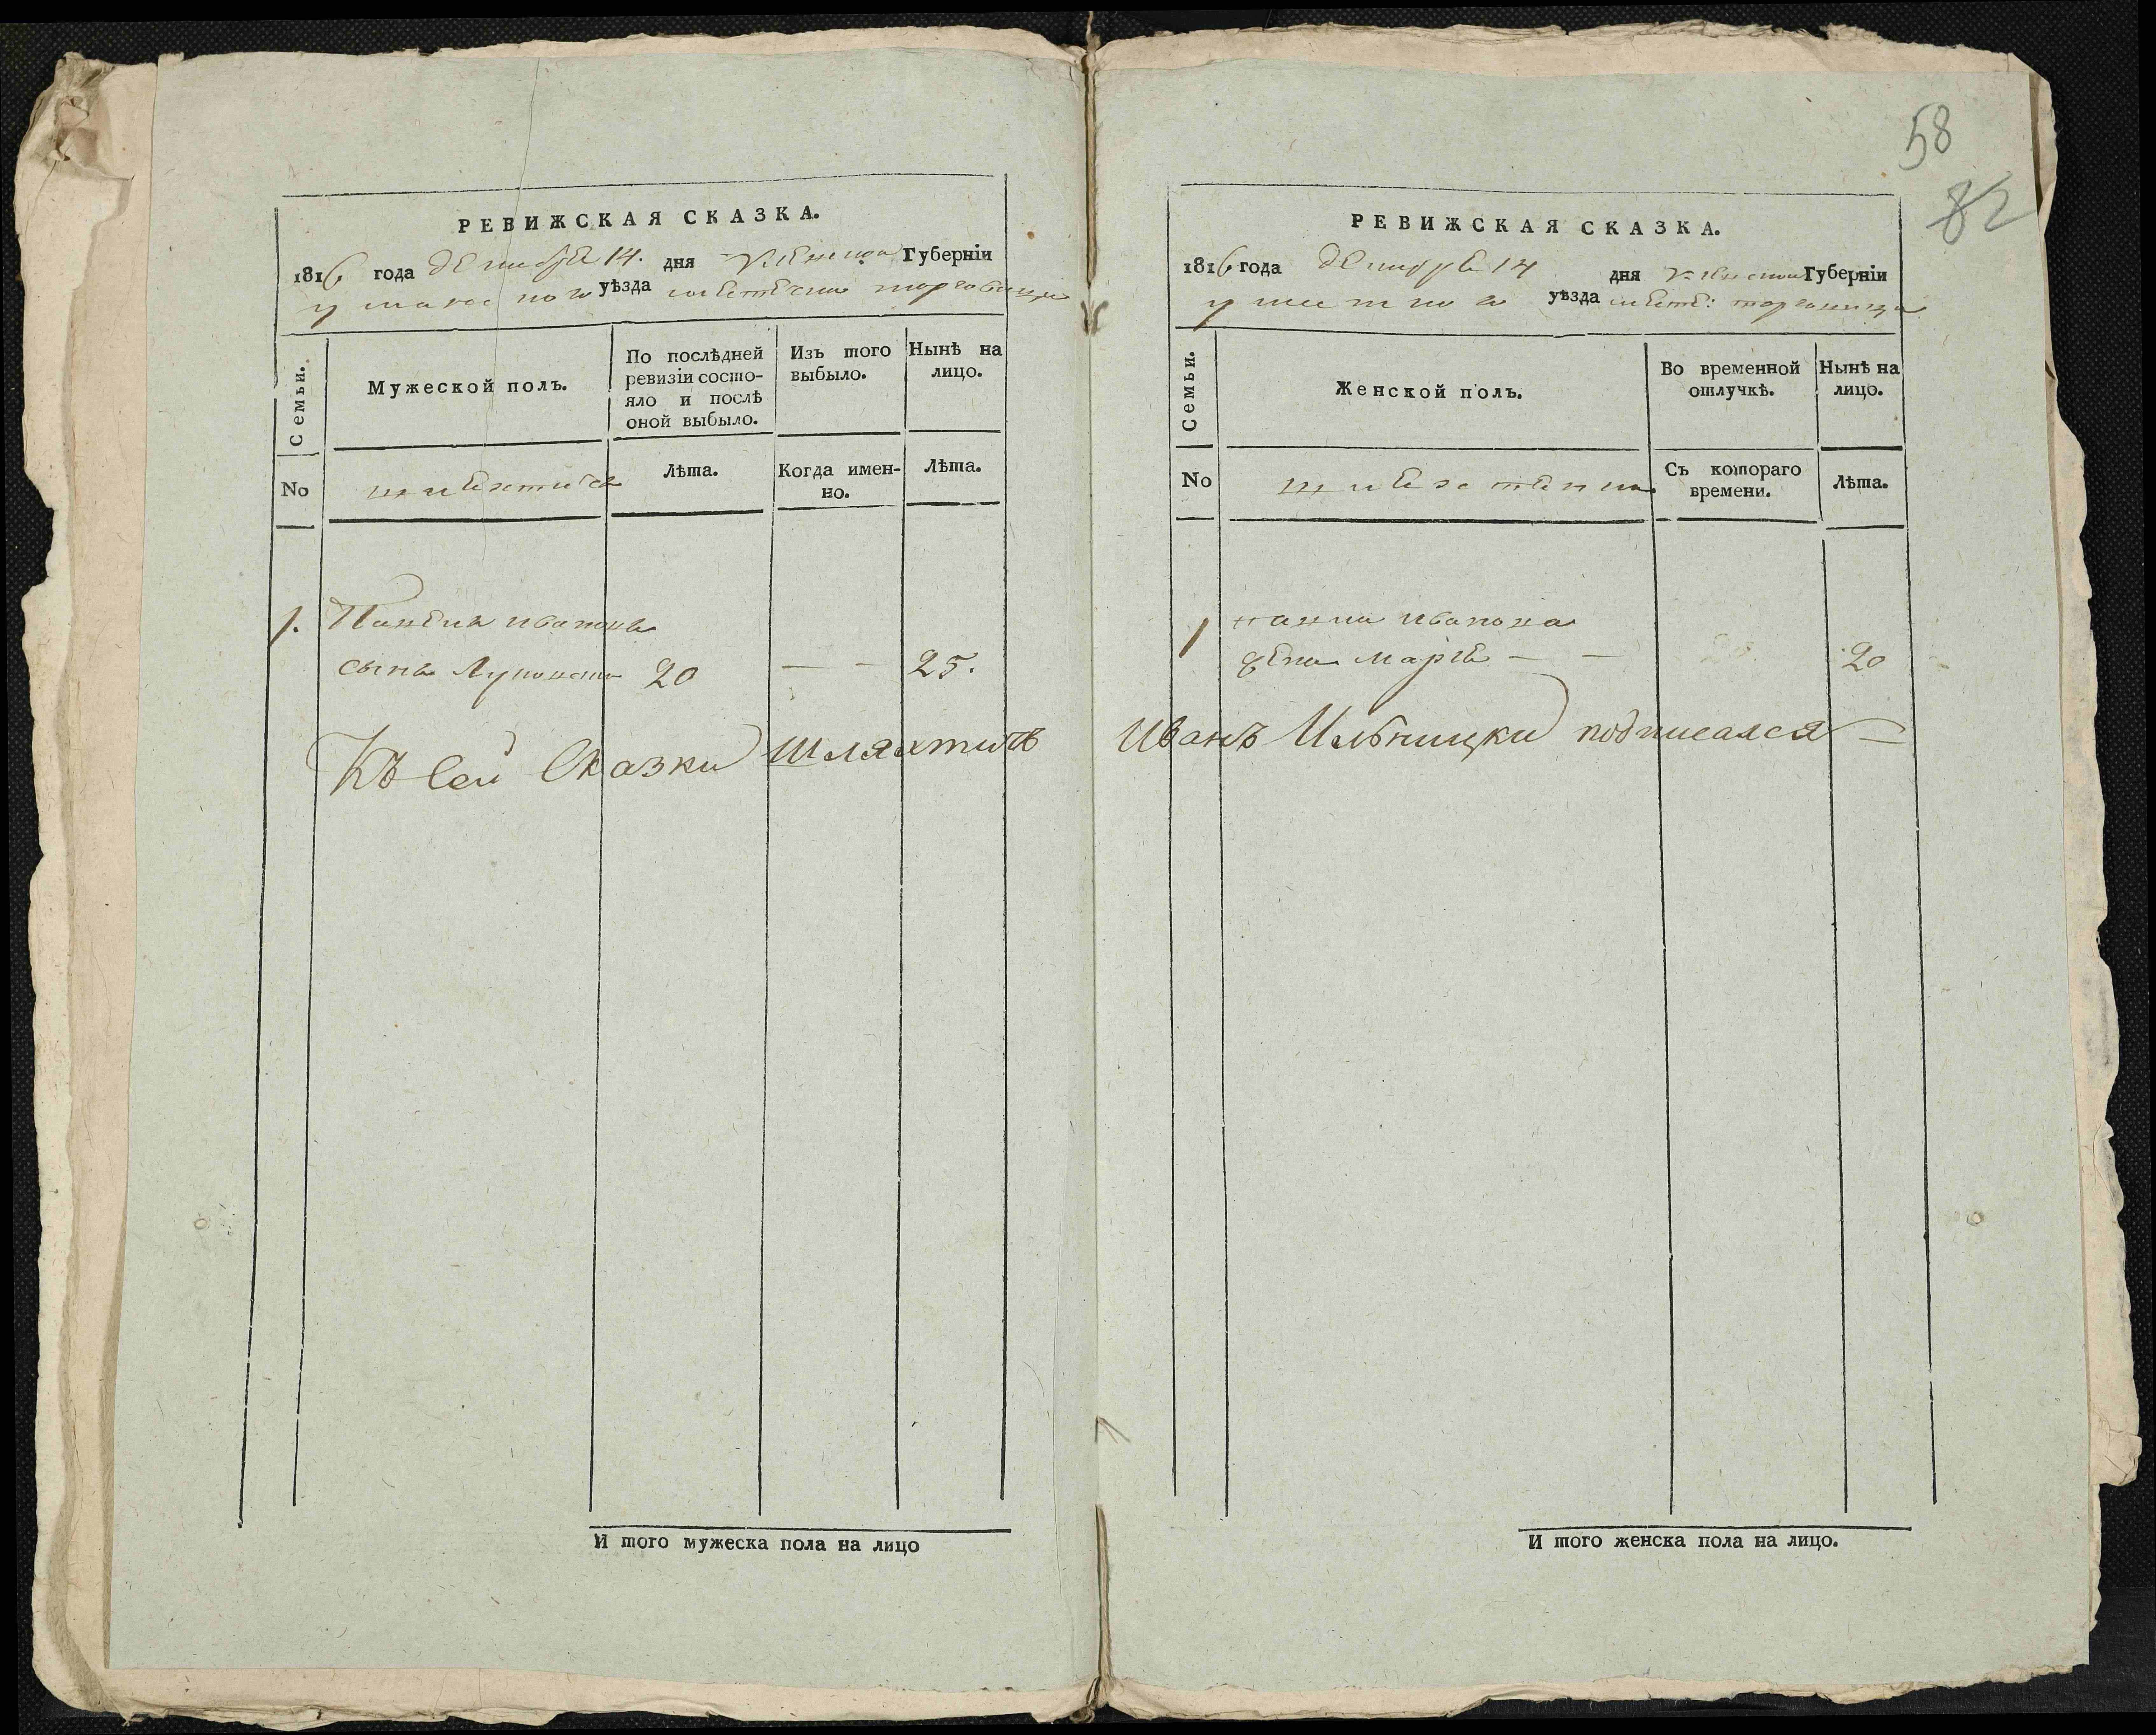 РЕВИЖСКАЯ СКАЗКА.
1816 года декабря 14. дня Киевской Губерніи
уманского уѣзда местечка торговици
Семьи.
Мужеской полъ.
По послѣдней ревизіи состо-
яло и послѣ
оной выбыло.
Изъ того
выбыло.
Нынѣ на
лицо.
No
шляхтичь
Лѣта.
Когда имен-
но.
Лѣта.
1. иванова
сынъ 20 — — 25.
Къ сей Сказки шляхтичъ
58
82
РЕВИЖСКАЯ СКАЗКА.
1816 года декабря 14 дня Киевской Губерніи
уѣзда мест: торговици
Семьи.
Женской полъ.
Во временной
отлучкѣ.
Нынѣ на
лицо.
No
Съ котораго
времени.
Лѣта.
1 иванова
жена Маря — — 20
Иванъ Ильницки подписался —
И того мужеска пола на лицо
И того женска пола на лицо.